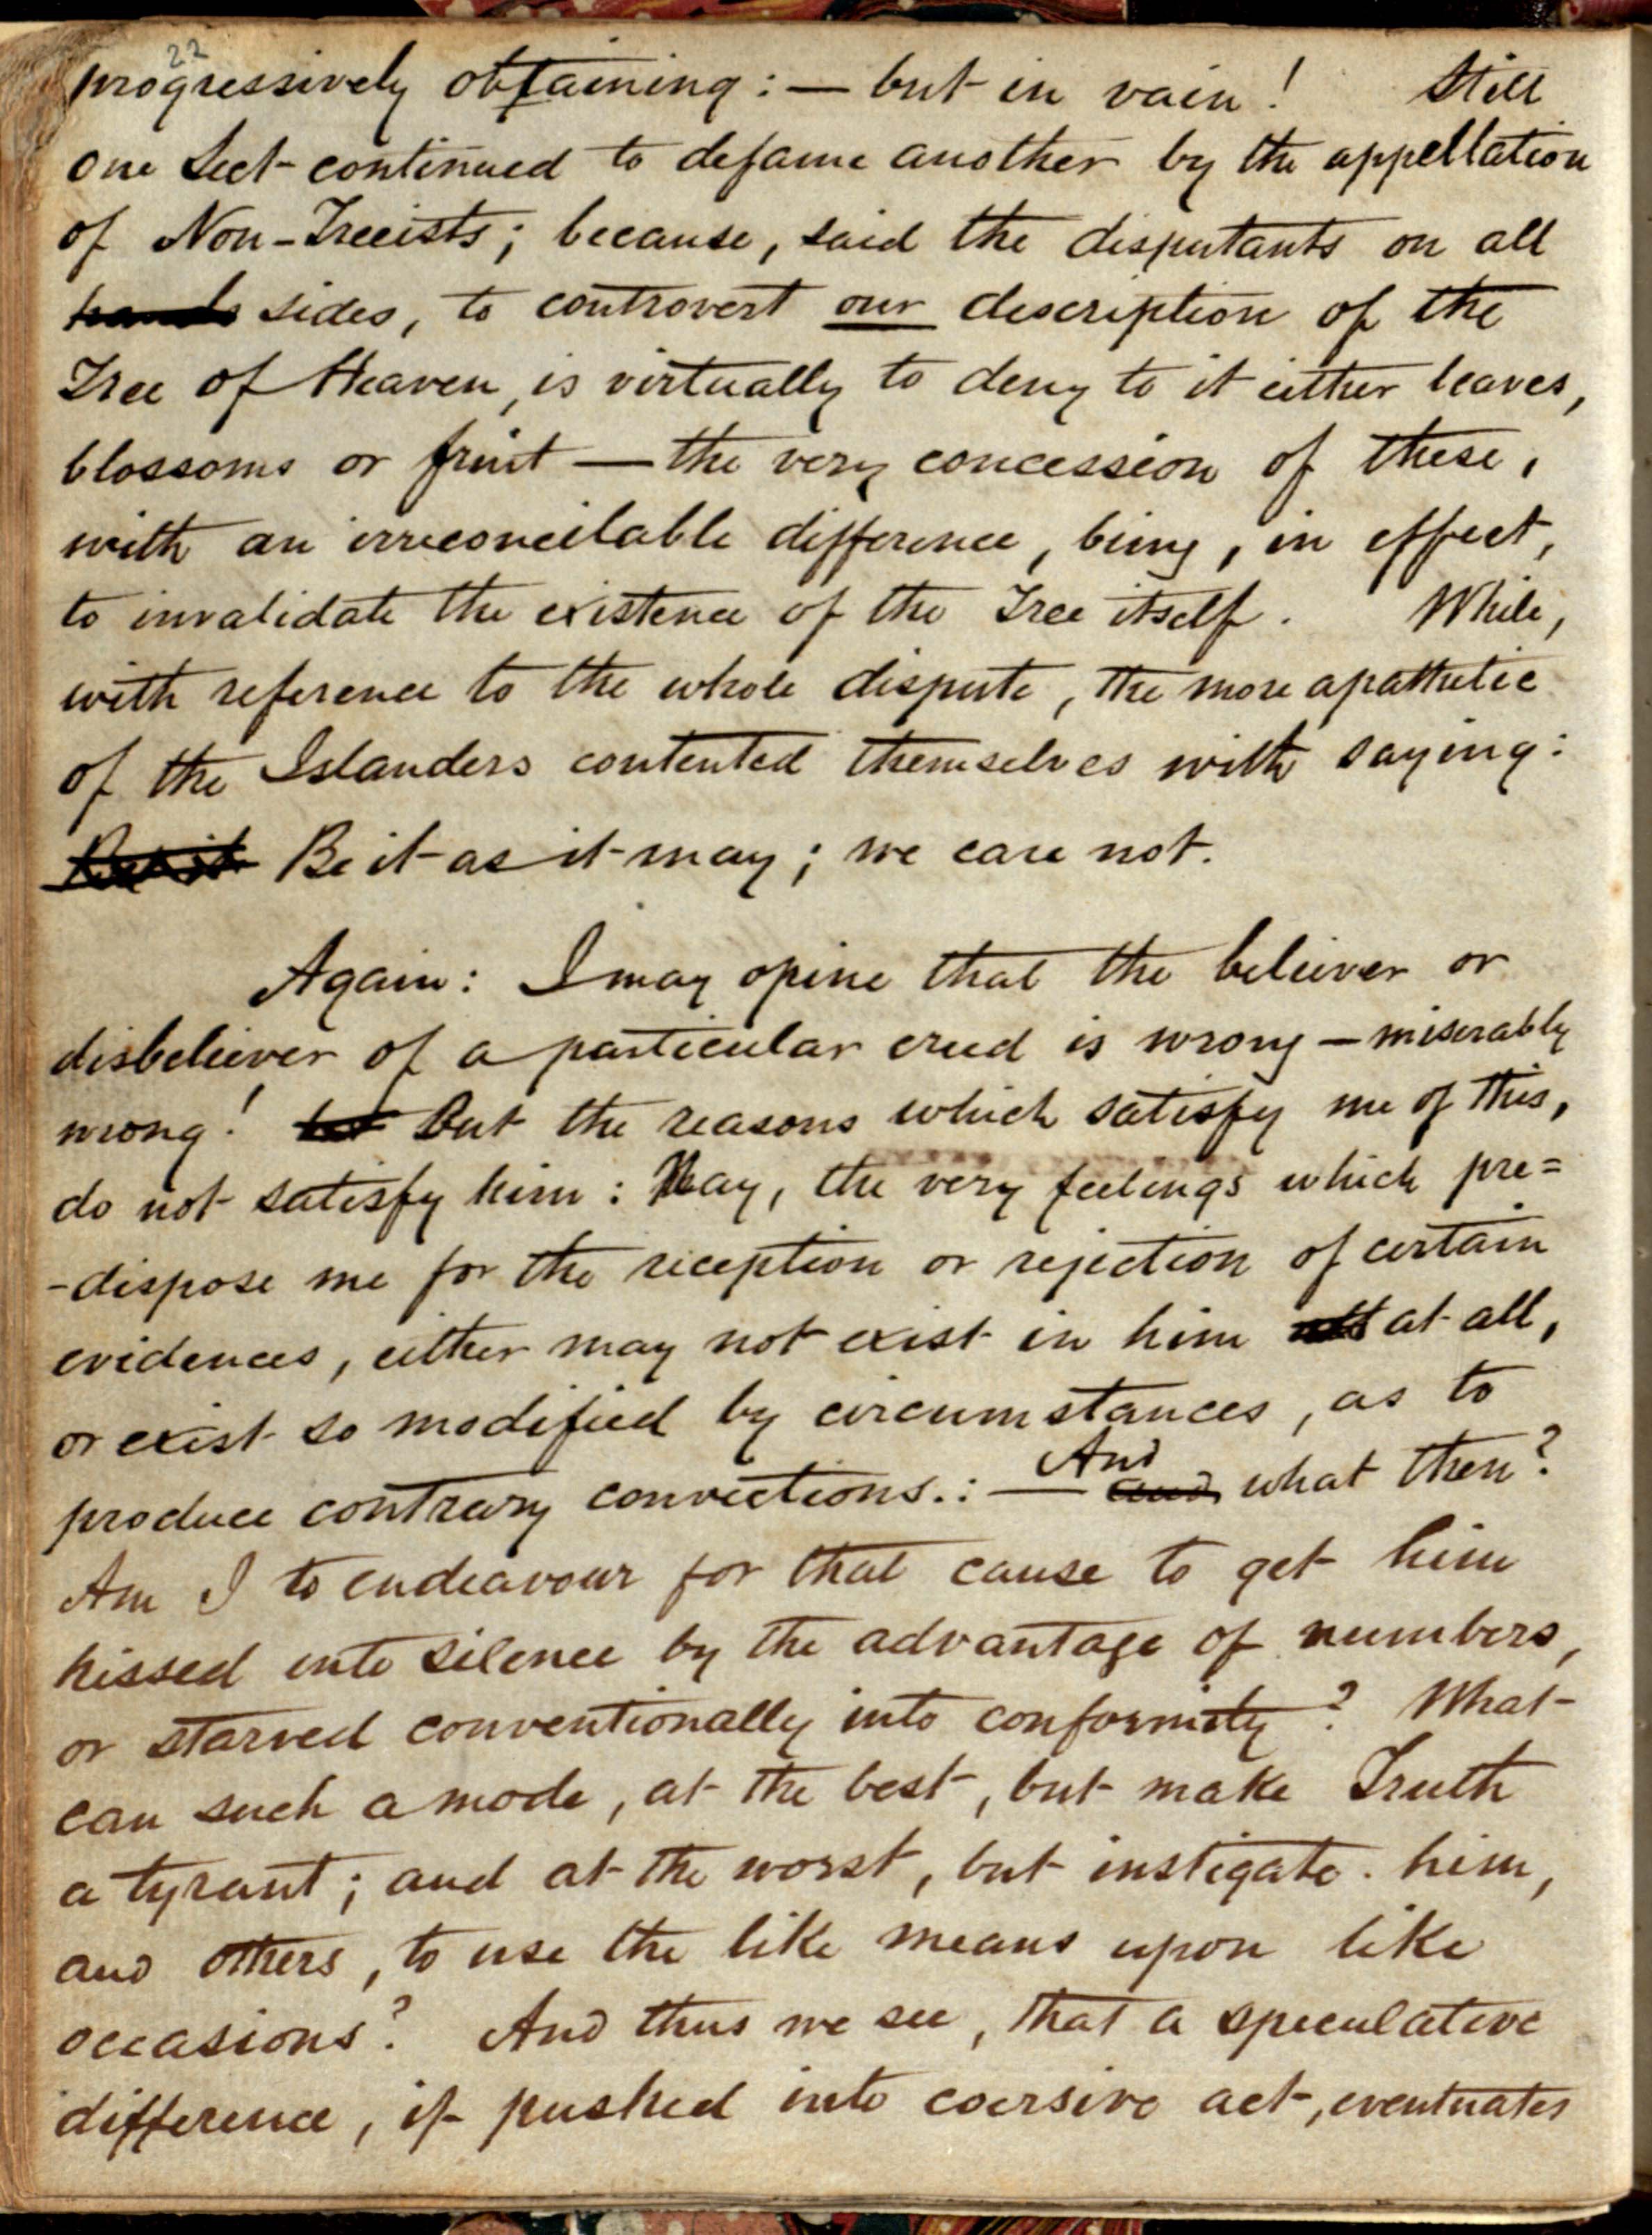 22
progressively obtaining: — but in vain! Still
one Sect continued to defame another by the appellation
of Non-Treeists; because, said the disputants on all
hands sides, to controvert our description of the
Tree of Heaven, is virtually to deny to it either leaves,
blossoms or fruit — the very concession of these,
with an irreconcilable difference, being, in effect,
to invalidate the existence of the Tree itself. While,
with reference to the whole dispute, the more apathetic
of the Islanders contented themselves with saying:
Be it as it may; we care not.
Again: I may opine that the believer or
disbeliever of a particular creed is wrong — miserably
wrong! but But the reasons which satisfy me of this,
do not satisfy him: Nay, the very feelings which pre=
-dispose me for the reception or rejection of certain
evidences, either may not exist in him at all,
or exist so modified by circumstances, as to
produce contrary convictions.: — And and what then?
Am I to endeavour for that cause to get him
hissed into silence by the advantage of numbers,
or starved conventionally into conformity? What
can such a mode, at the best, but make Truth
a tyrant; and at the worst, but instigate him,
and others, to use the like means upon like
occasions? And thus we see, that a speculative
difference, if pushed into coersive act, eventuates